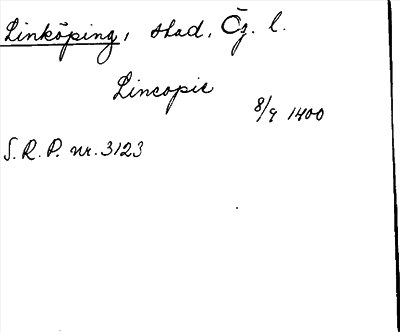 Linköping, stad, Ög. l.
Lincopie
8/9 1400
S.R.P. nr. 3123